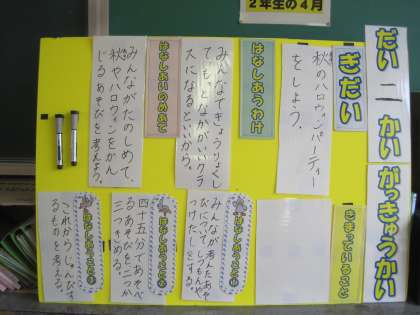 2年生の4月
だい二かい がっきゅうかい
ぎだい
秋のハロウィンパーティー
をしよう。
はなしあうわけ
みんなできょうりょくし
てもっとなかがいいクラ
スになるといいから。
はなしあいのめあて
みんながたのしめて、
秋やハロウィンをかん
じるあそびを考えよう。
きまっていること
はなしあうこと①
みんなが考えたあそ
びについて、しつもんや
つけたしをする。
はなしあうこと②
四十五分であそべ
るあそびを二つか
三つきめる。
はなしあうこと③
これからじゅんびす
るものを考える。